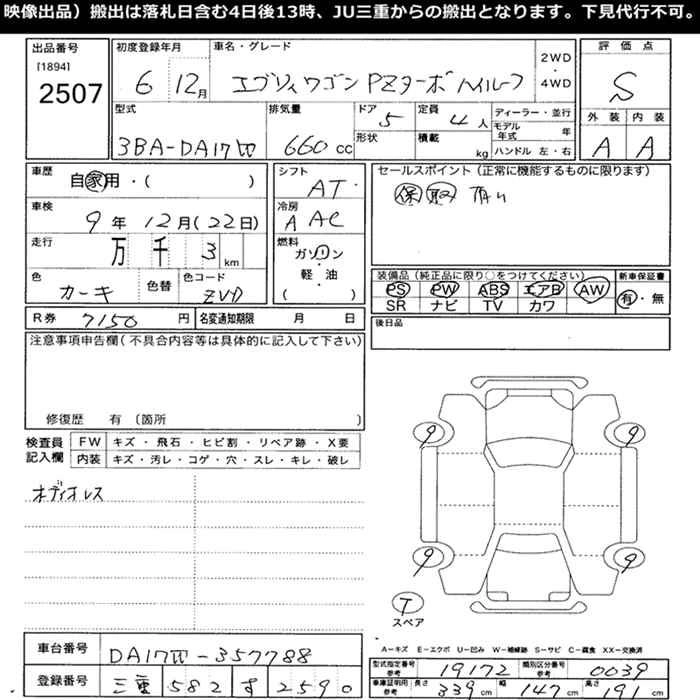 映像出品）搬出は落札日含む4日後13時、JU三重からの搬出となります。下見代行不可。
出品番号
[1894]
2507
初度登録年月
6 12月
車名・グレード
エブリィワゴン PZターボ ハイルーフ
2WD
・
4WD
評価点
S
外装 内装
A A
型式
3BA-DA17W
排気量
660cc
ドア
5
形状
定員
4人
積載
kg
ディーラー・並行
モデル年式 年
ハンドル 左・右
車歴
自家用・( )
車検
9年12月(22日)
走行
万 千 3 km
色
カーキ
色替
色コード
ZVD
シフト
AT
冷房
A AC
燃料
ガソリン
・
軽・油
( )
セールスポイント（正常に機能するものに限ります）
保 取 有り
装備品（純正品に限り○をつけてください）
PS PW ABS エアB AW
SR ナビ TV カワ
新車保証書
有・無
R券 7150 円
名変通知期限 月 日
後日品
注意事項申告欄（不具合内容等は具体的に記入して下さい）
修復歴 有 〔箇所 〕
検査員記入欄
FW キズ・飛石・ヒビ割・リペア跡・X要
内装 キズ・汚レ・コゲ・穴・スレ・キレ・破レ
オーディオレス
9 9
9 9
T
スペア
A＝キズ E＝エクボ U＝凹み W＝補修跡 S＝サビ C＝腐食 XX＝交換済
車台番号
DA17W-357788
登録番号
三重 582 す 2590
型式指定番号 参考 19172
類別区分番号 参考 0039
車庫証明用 参考 長さ 339cm 幅 147cm 高さ 191cm